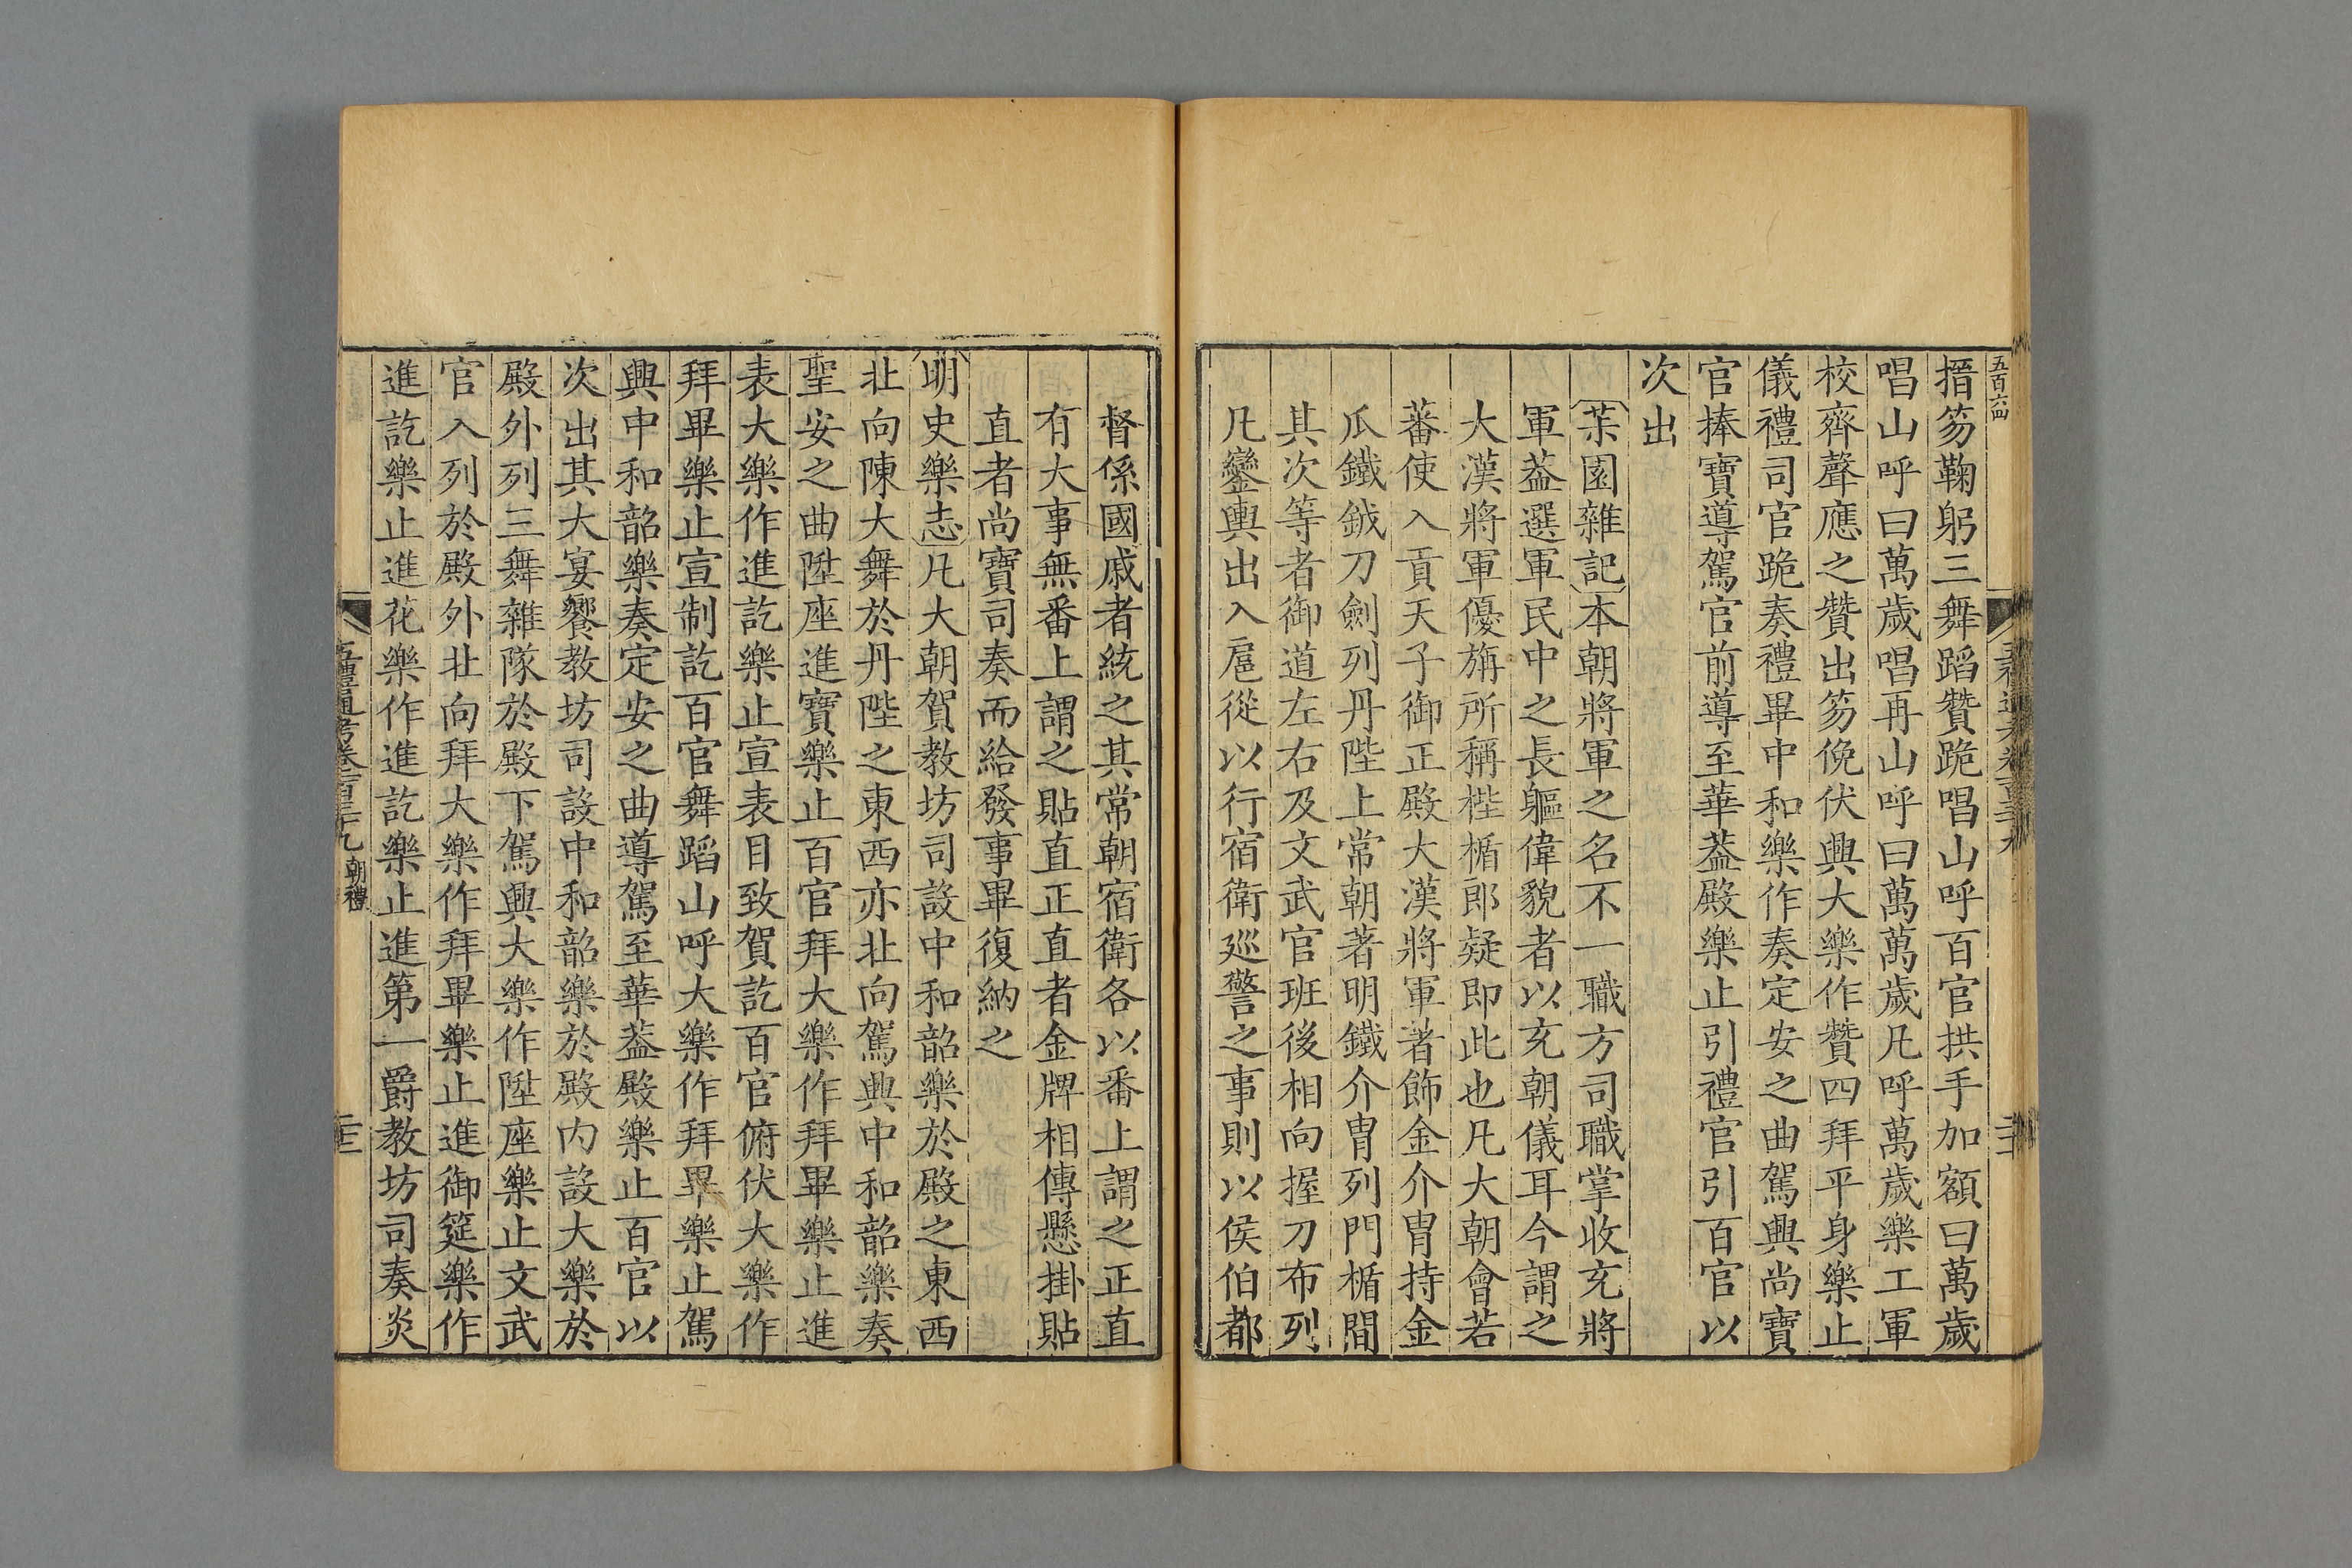 五百六四
搢笏鞠躬三舞蹈贊跪唱山呼百官拱手加額曰萬歲
唱山呼曰萬歲唱再山呼曰萬萬歲凡呼萬歲樂工軍
校齊聲應之贊出笏俛伏興大樂作贊四拜平身樂止
儀禮司官跪奏禮畢中和樂作奏定安之曲駕興尚寶
官捧寶導駕官前導至華葢殿樂止引禮官引百官以
次出
菽園雜記本朝將軍之名不一職方司職掌收充將
軍葢選軍民中之長軀偉貌者以充朝儀耳今謂之
大漢將軍優旃所稱梐楯郎疑即此也凡大朝會若
蕃使入貢天子御正殿大漢將軍著飾金介胄持金
瓜鐵鉞刀劍列丹陛上常朝著明鐵介胄列門楯間
其次等者御道左右及文武官班後相向握刀布列
凡鑾輿出入扈從以行宿衛廵警之事則以侯伯都
督係國戚者統之其常朝宿衛各以番上謂之正直
有大事無番上謂之貼直正直者金牌相傳懸掛貼
直者尚寶司奏而給發事畢復納之
明史樂志凡大朝賀教坊司設中和韶樂於殿之東西
北向陳大舞於丹陛之東西亦北向駕興中和韶樂奏
聖安之曲陞座進寶樂止百官拜大樂作拜畢樂止進
表大樂作進訖樂止宣表目致賀訖百官俯伏大樂作
拜畢樂止宣制訖百官舞蹈山呼大樂作拜畢樂止駕
興中和韶樂奏定安之曲導駕至華葢殿樂止百官以
次出其大宴饗教坊司設中和韶樂於殿內設大樂於
殿外列三舞雜隊於殿下駕興大樂作陞座樂止文武
官入列於殿外北向拜大樂作拜畢樂止進御筵樂作
進訖樂止進花樂作進訖樂止進第一爵教坊司奏炎
五禮通考卷一百三十九 朝禮